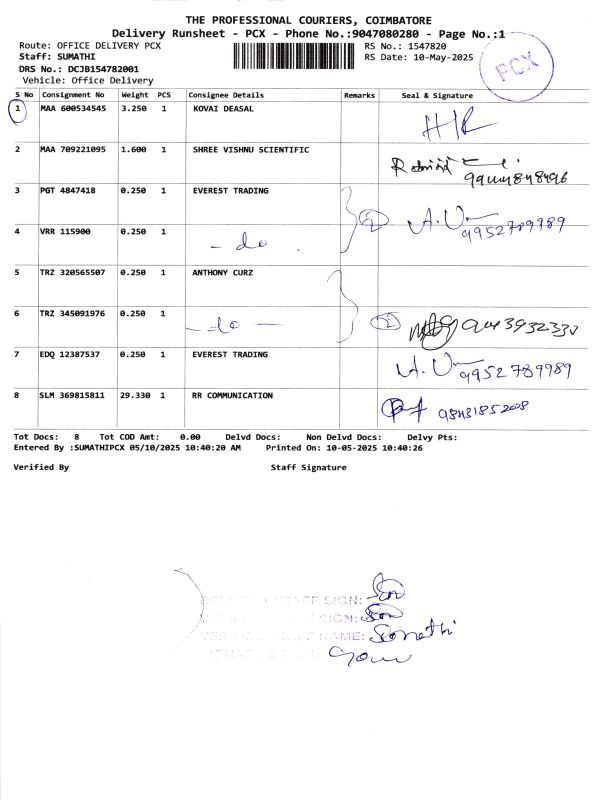 THE PROFESSIONAL COURIERS, COIMBATORE
Delivery Runsheet - PCX - Phone No.:9047080280 - Page No.:1
Route: OFFICE DELIVERY PCX
RS No.: 1547820
Staff: SUMATHI
RS Date: 10-May-2025
DRS No.: DCJB154782001
Vehicle: Office Delivery
PCX
S No Consignment No Weight PCS Consignee Details Remarks Seal & Signature
1 MAA 600534545 3.250 1 KOVAI DEASAL
2 MAA 709221095 1.600 1 SHREE VISHNU SCIENTIFIC
3 PGT 4847418 0.250 1 EVEREST TRADING
9952789989
4 VRR 115900 0.250 1 - do
5 TRZ 320565507 0.250 1 ANTHONY CURZ
6 TRZ 345091976 0.250 1 - do -
7 EDQ 12387537 0.250 1 EVEREST TRADING
9952789989
8 SLM 369815811 29.330 1 RR COMMUNICATION
9843185208
Tot Docs: 8 Tot COD Amt: 0.00 Delvd Docs: Non Delvd Docs: Delvy Pts:
Entered By :SUMATHIPCX 05/10/2025 10:40:20 AM Printed On: 10-05-2025 10:40:26
Verified By Staff Signature
STAFF SIGN:
SIGN:
NAME: Sumathi